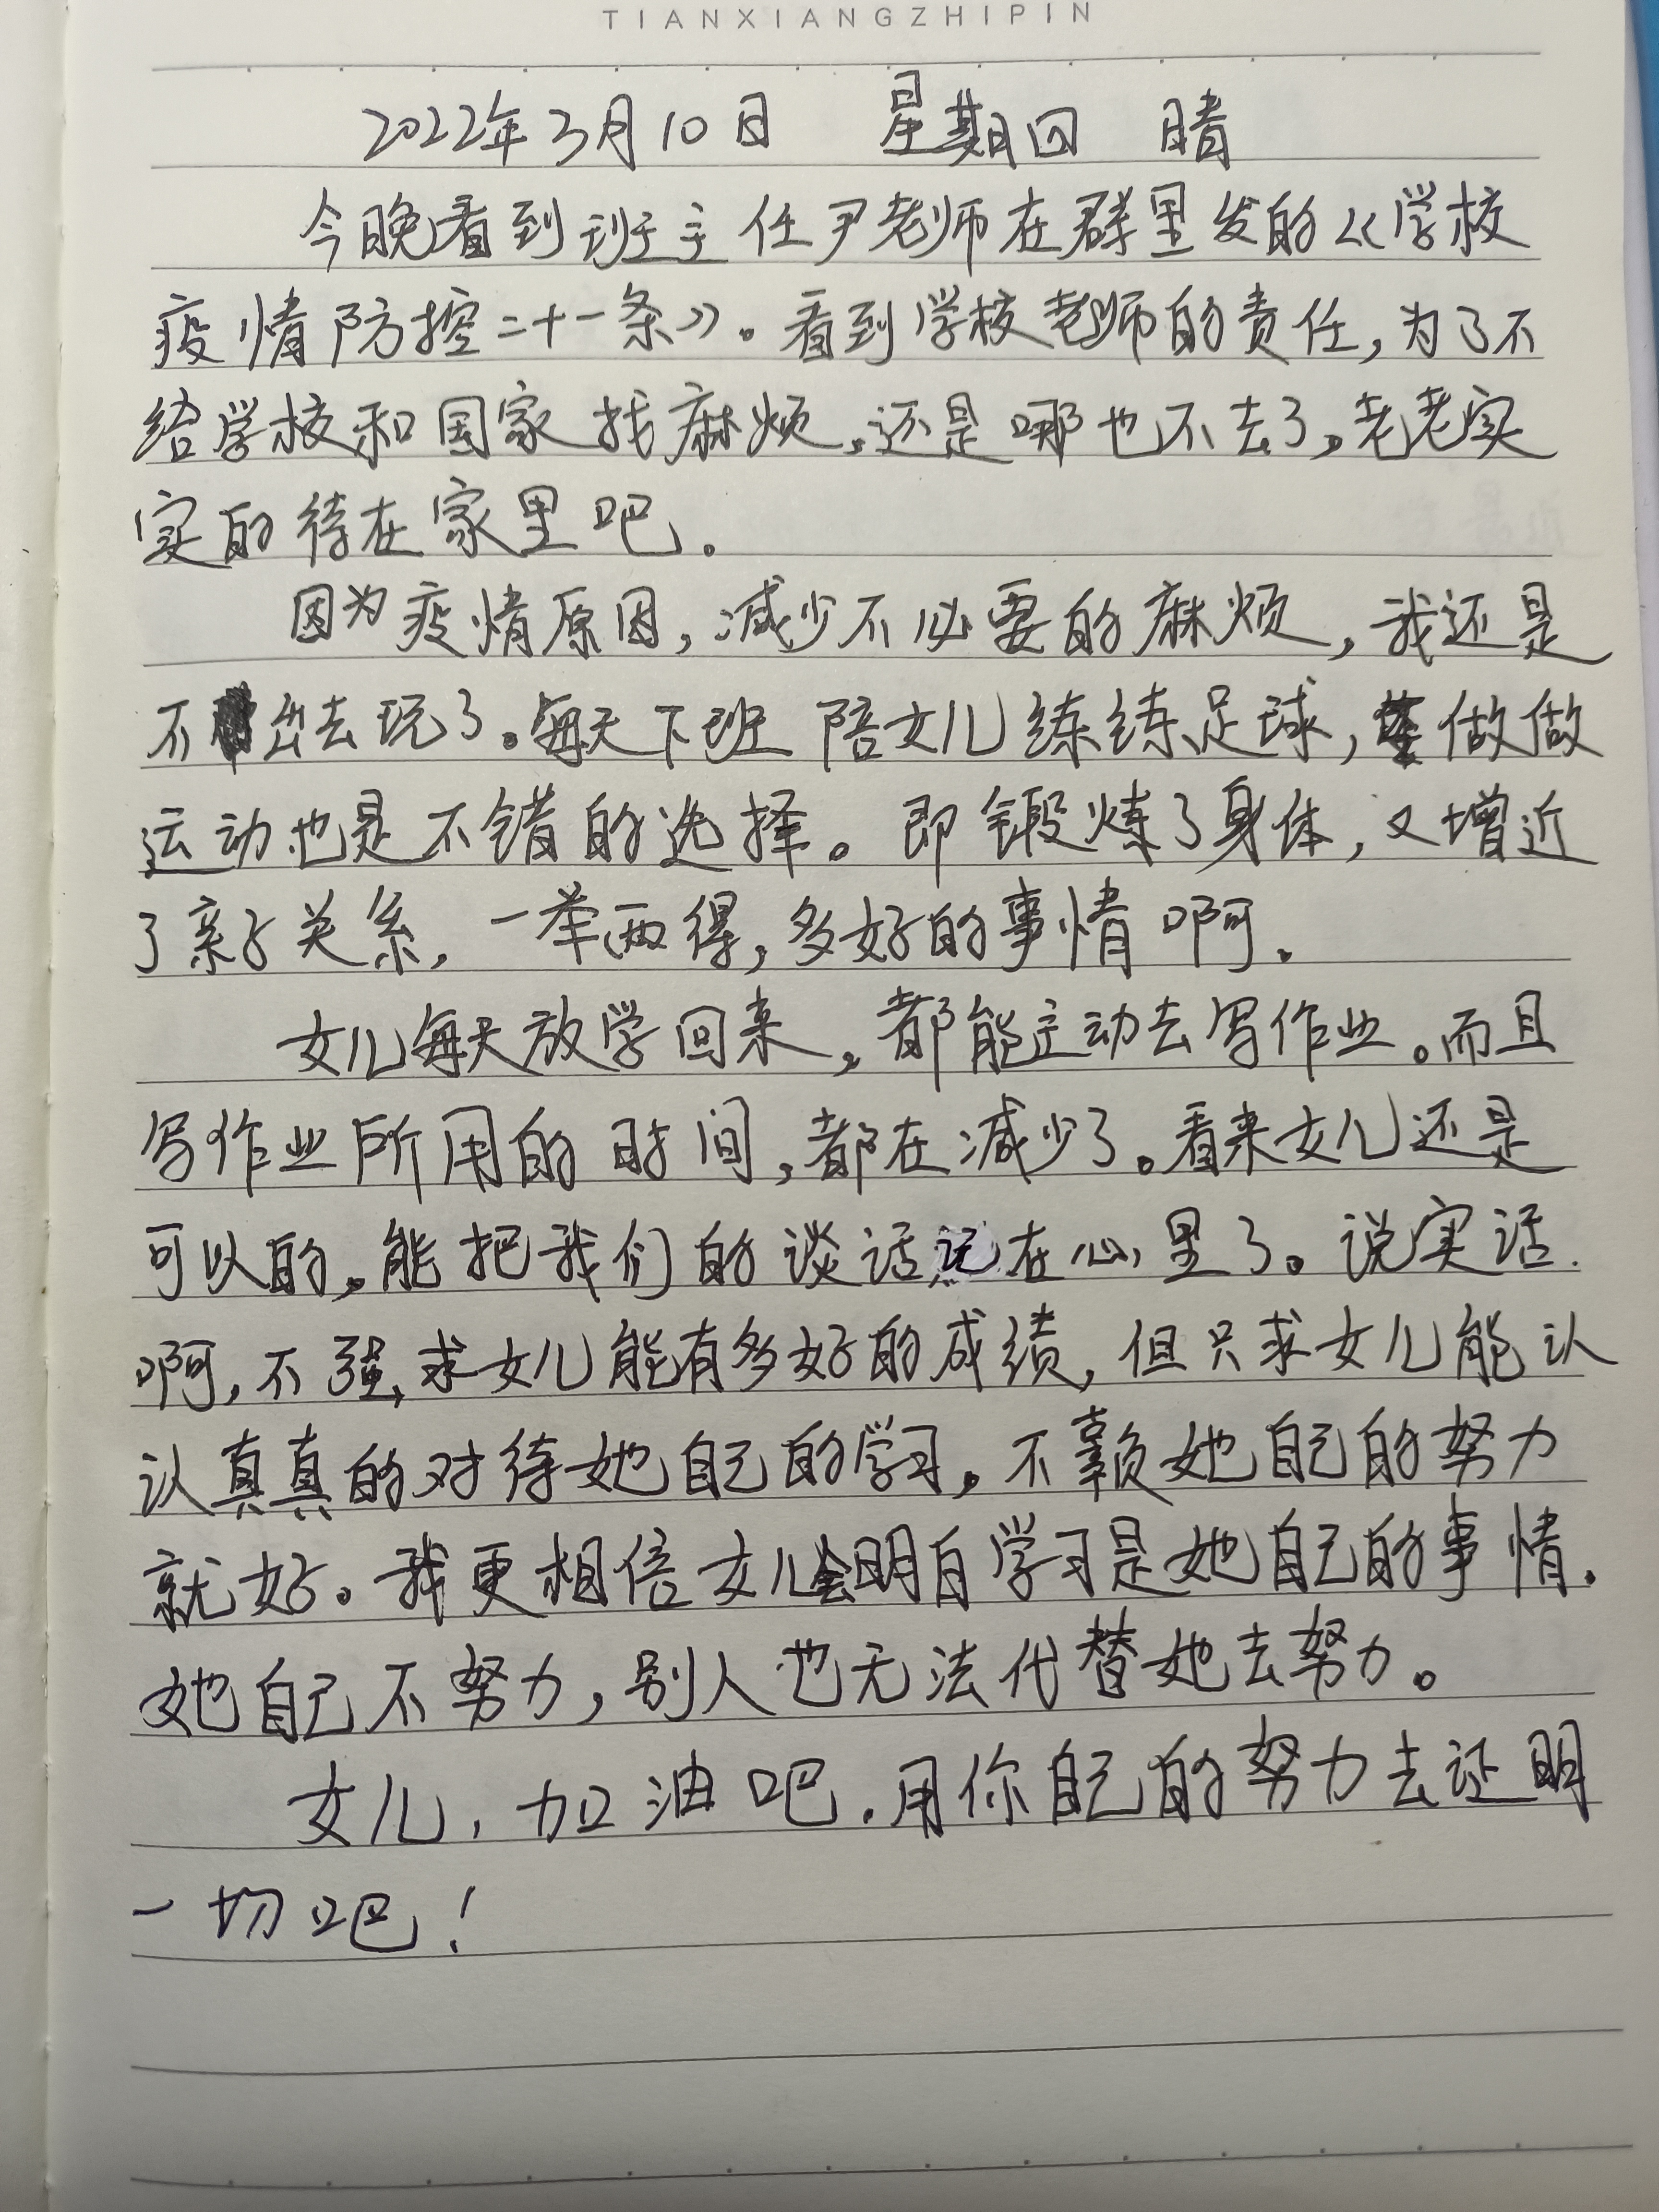 TIANXIANGZHIPIN
2022年3月10日 星期四 晴
今晚看到班主任尹老师在群里发的《学校
疫情防控二十一条》。看到学校老师的责任,为了不
给学校和国家找麻烦,还是哪也不去了,老老实
实的待在家里吧。
因为疫情原因,减少不必要的麻烦,我还是
不出去玩了。每天下班陪女儿练练足球,做做
运动也是不错的选择。即锻炼了身体,又增近
了亲子关系,一举两得,多好的事情啊。
女儿每天放学回来,都能主动去写作业。而且
写作业所用的时间,都在减少了。看来女儿还是
可以的,能把我们的谈话记在心里了。说实话
啊,不强求女儿能有多好的成绩,但只求女儿能认
认真真的对待她自己的学习,不辜负她自己的努力
就好。我更相信女儿会明白学习是她自己的事情.
她自己不努力,别人也无法代替她去努力。
女儿,加油吧.用你自己的努力去证明
一切吧!